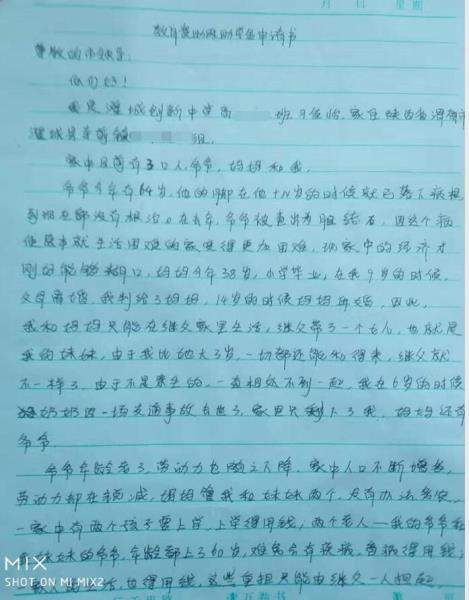 月 日 星期
教育资助网助学金申请书
尊敬的市领导:
你们好!
我是澄城创新中学高 班 家住陕西省渭南市
澄城县 镇 组,
家中目前有3口人爷爷,妈妈和我,
爷爷今年有64岁,他的脚在他十几岁的时候就已落下病根
到现在都没有根治。在去年,爷爷被查出为胆结石,因这个病
使原本就生活困难的家变得更加困难,现家中的经济才
刚好能够糊口,妈妈今年38岁,小学毕业,在我9岁的时候,
父母离婚,我判给了妈妈,14岁的时候妈妈再婚,因此,
我和妈妈只能在继父家里生活,继父带了一个女儿,也就是
我的妹妹,由于我比她大3岁,一切都还能和得来,继父就
不一样了,由于不是亲生的,一直相处不到一起,我在6岁的时候
奶奶因一场交通事故去世了,家里只剩下了我,妈妈还有
爷爷.
爷爷年龄老了,劳动力也随之下降,家中人口不断增多,
劳动力却在锐减,妈妈管我和妹妹两个,没有办法务农,
一家中有两个孩子要上学,上学得用钱,两个老人——我的爷爷和
妹妹的爷爷,年龄都上了60岁,难免会有疾病,看病得用钱,
家人的生活,也得用钱,这些重担只能由继父一人担起,
MIX
SHOT ON MI MIX2